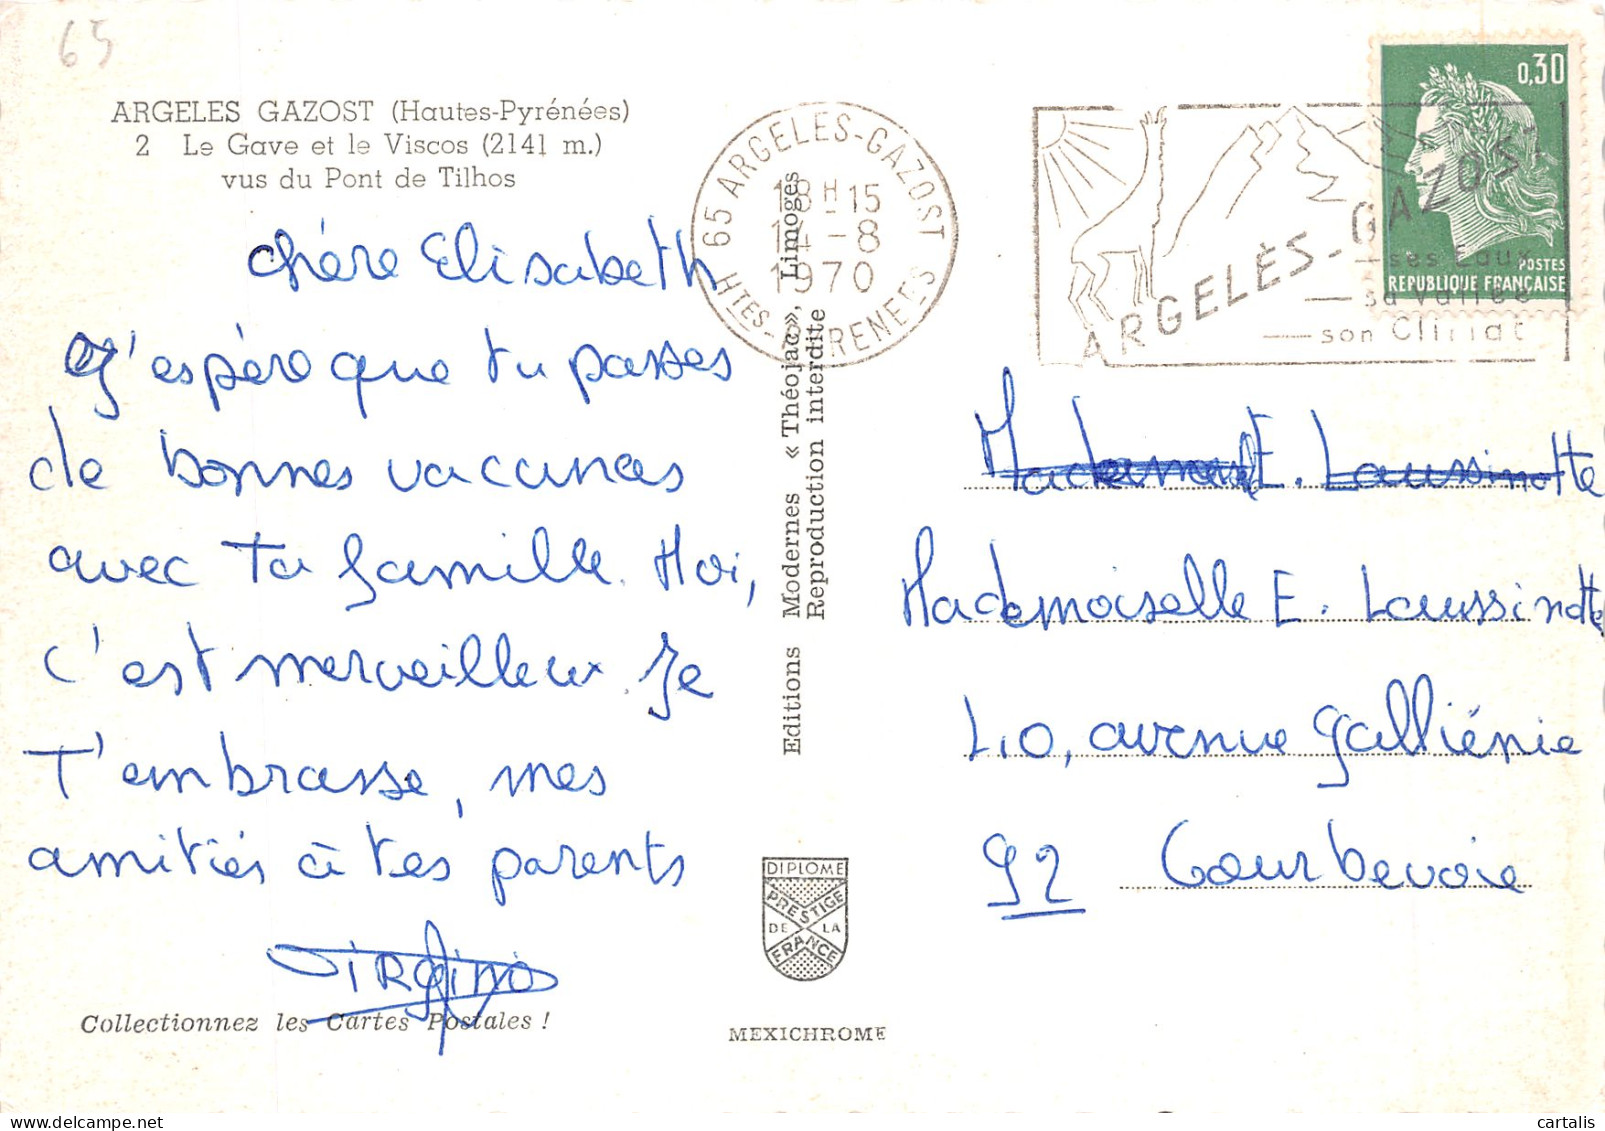 65
ARGELES GAZOST (Hautes-Pyrénées)
2 Le Gave et le Viscos (2141 m.)
vus du Pont de Tilhos
Chère Elisabeth
J'espère que tu passes
de bonnes vacances
avec Ta famille. Moi,
c'est merveilleux. Je
T'embrasse, mes
amitiés à tes parents
Collectionnez les Cartes Postales !
Editions Modernes « Théojac», Limoges
Reproduction interdite
DIPLOME
PRESTIGE
DE LA
FRANCE
MEXICHROME
65 ARGELES-GAZOST
18H-15
-8
1970
HTES-PYRENEES
ARGELÈS-GAZOST
ses Eaux
sa Vallée
son Climat
0,30
POSTES
REPUBLIQUE FRANÇAISE
E. Laussinotte
Mademoiselle E. Laussinotte
40, avenue Galliénie
92 Courbevoie
cartalis